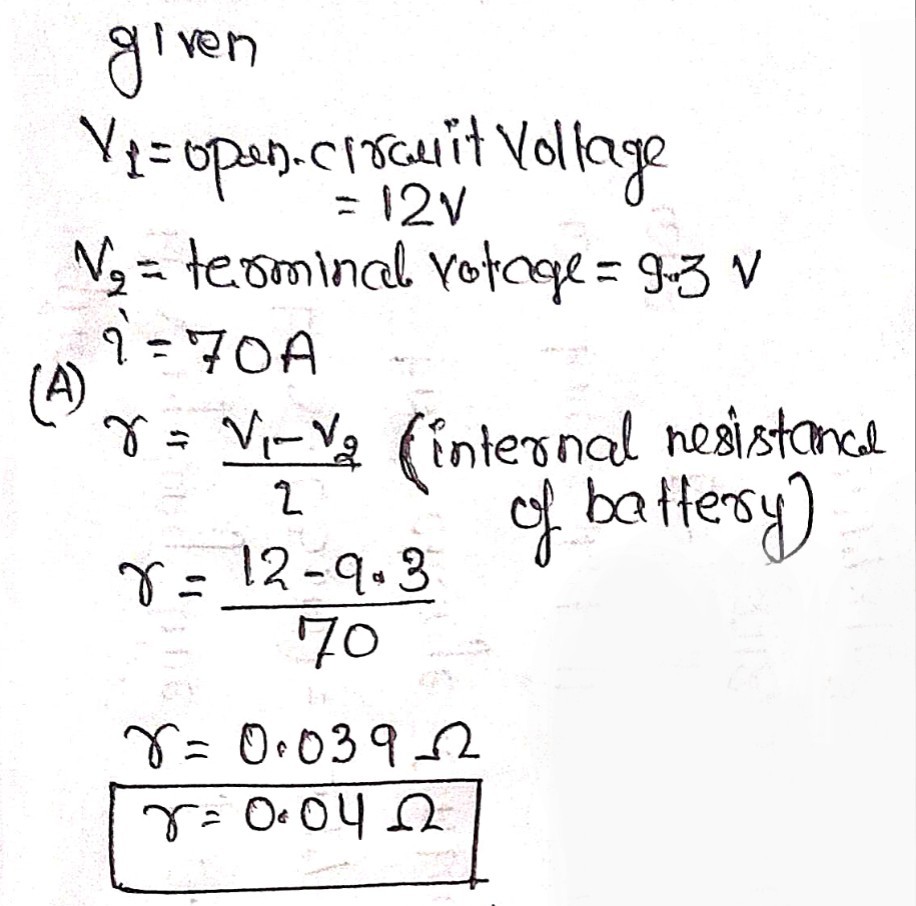 given
V1 = open-circuit Voltage
= 12V
V2 = terminal votage = 9.3 V
i = 70A
(A)
r = V1-V2 (internal resistance
i
of battery)
r = 12-9.3
70
r = 0.039 Ω
r = 0.04 Ω